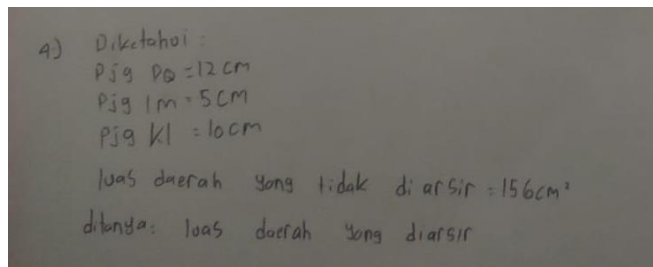 4) Diketahui :
Pjg PQ = 12 cm
Pjg lm = 5 cm
Pjg Kl = 10cm
luas daerah yang tidak di arsir = 156cm²
ditanya: luas daerah yang diarsir